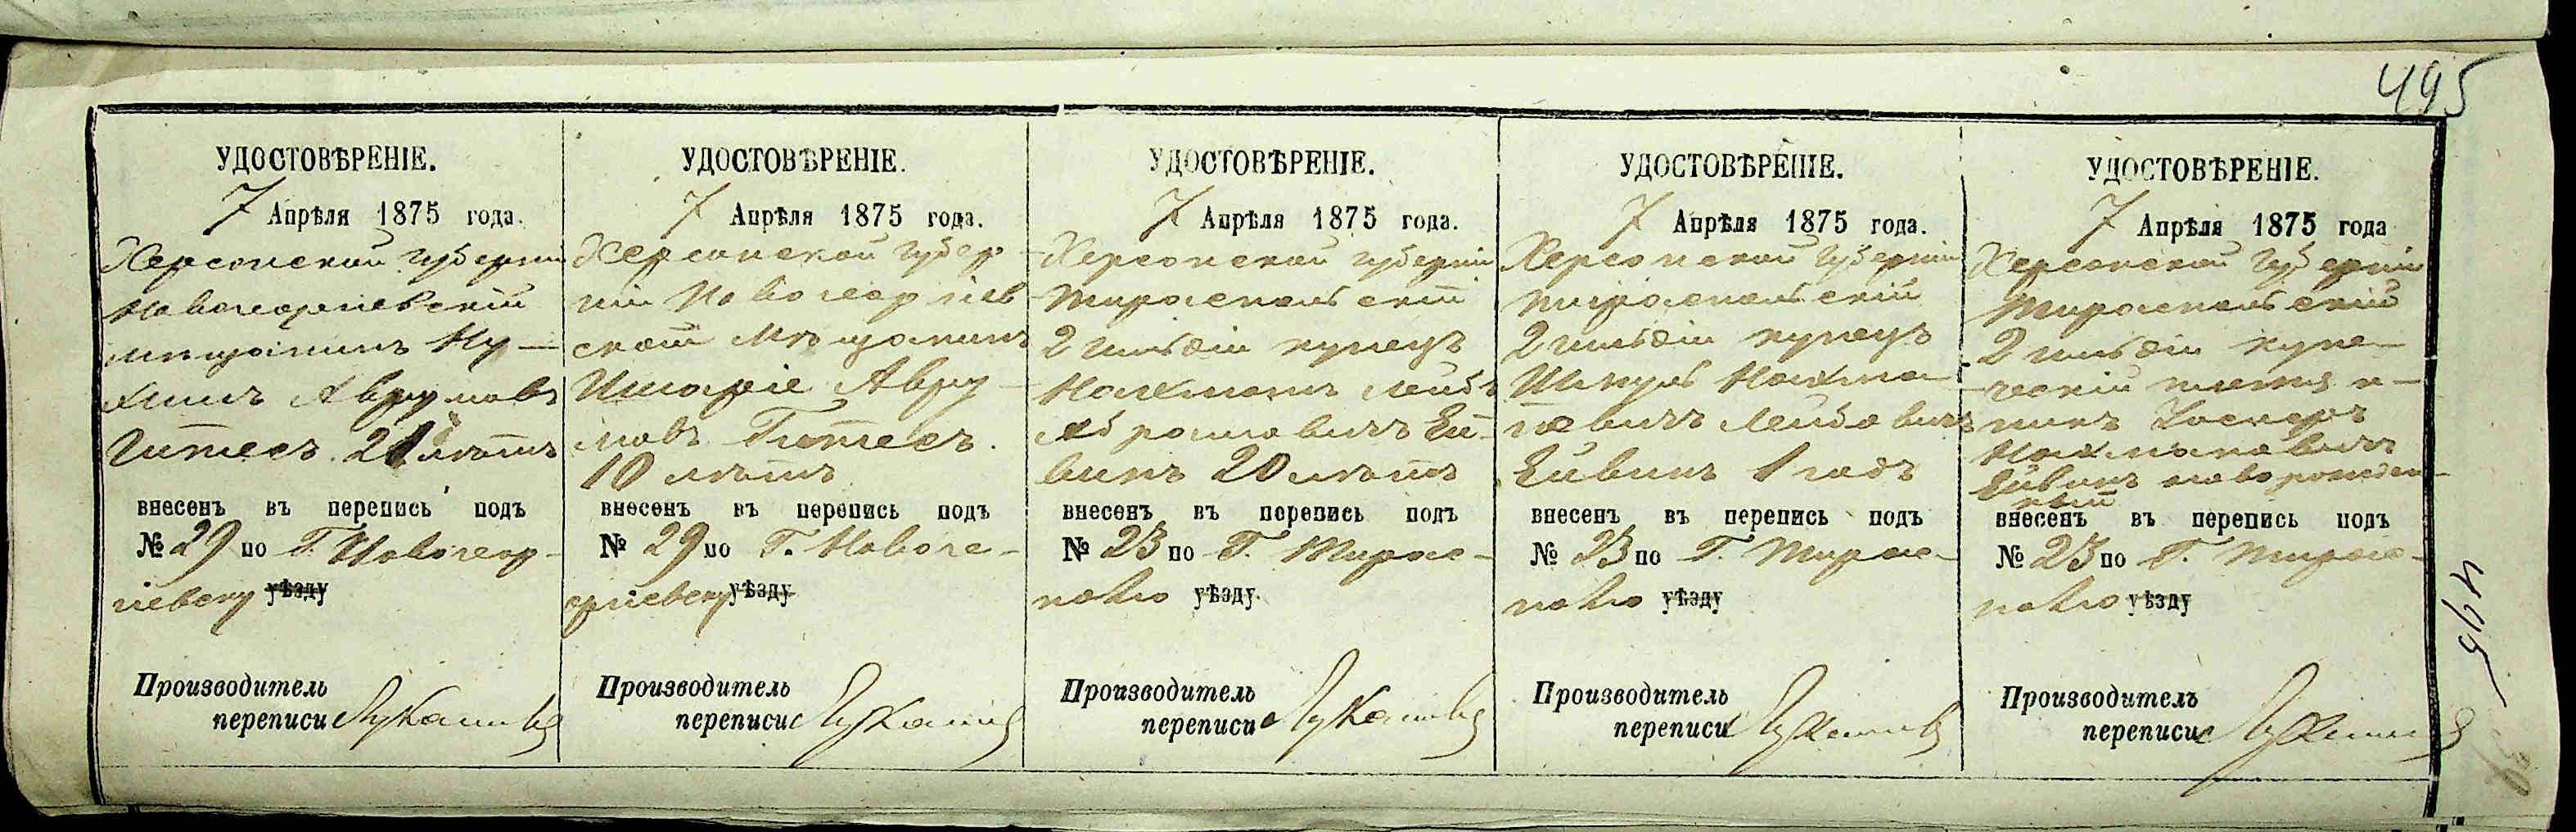 495
УДОСТОВѢРЕНІЕ.
7 Апрѣля 1875 года.
Херсонской губерніи
Новогеоргіевскій
мѣщанинъ Ну-
химъ Аврумовъ
Гитесъ 21 лѣтъ
внесенъ въ перепись подъ
№ 29 по Г. Новогеор-
гіевску уѣзду
Производитель
переписи
УДОСТОВѢРЕНІЕ.
7 Апрѣля 1875 года.
Херсонской губер-
ніи Новогеоргіев
скій мѣщанинъ
Авру-
мовъ Гитесъ.
10 лѣтъ
внесенъ въ перепись подъ
№ 29 по Г. Новоге-
оргіевску уѣзду
Производитель
переписи
УДОСТОВѢРЕНІЕ.
7 Апрѣля 1875 года.
Херсонской губерніи
Тираспольскій
2 гильдіи купецъ
Нахманъ Лейбъ
Абрамовичъ Ей-
винъ 20 лѣтъ
внесенъ въ перепись подъ
№ 23 по Г. Тирас-
полю уѣзду.
Производитель
переписи
УДОСТОВѢРЕНІЕ.
7 Апрѣля 1875 года.
Херсонской губерніи
Тираспольскій
2 гильдіи купецъ
Шмуль Нахма-
новичъ Лейбовичъ
Ейвинъ 1 годъ
внесенъ въ перепись подъ
№ 23 по Г. Тирас-
полю уѣзду
Производитель
переписи
УДОСТОВѢРЕНІЕ.
7 Апрѣля 1875 года
Херсонской губерніи
Тираспольскій
2 гильдіи купе-
ческій племян-
никъ
Нахмановичъ
Ейвинъ новорожден-
ный
внесенъ въ перепись подъ
№ 23 по Г. Тирас-
полю уѣзду
Производитель
переписи
495